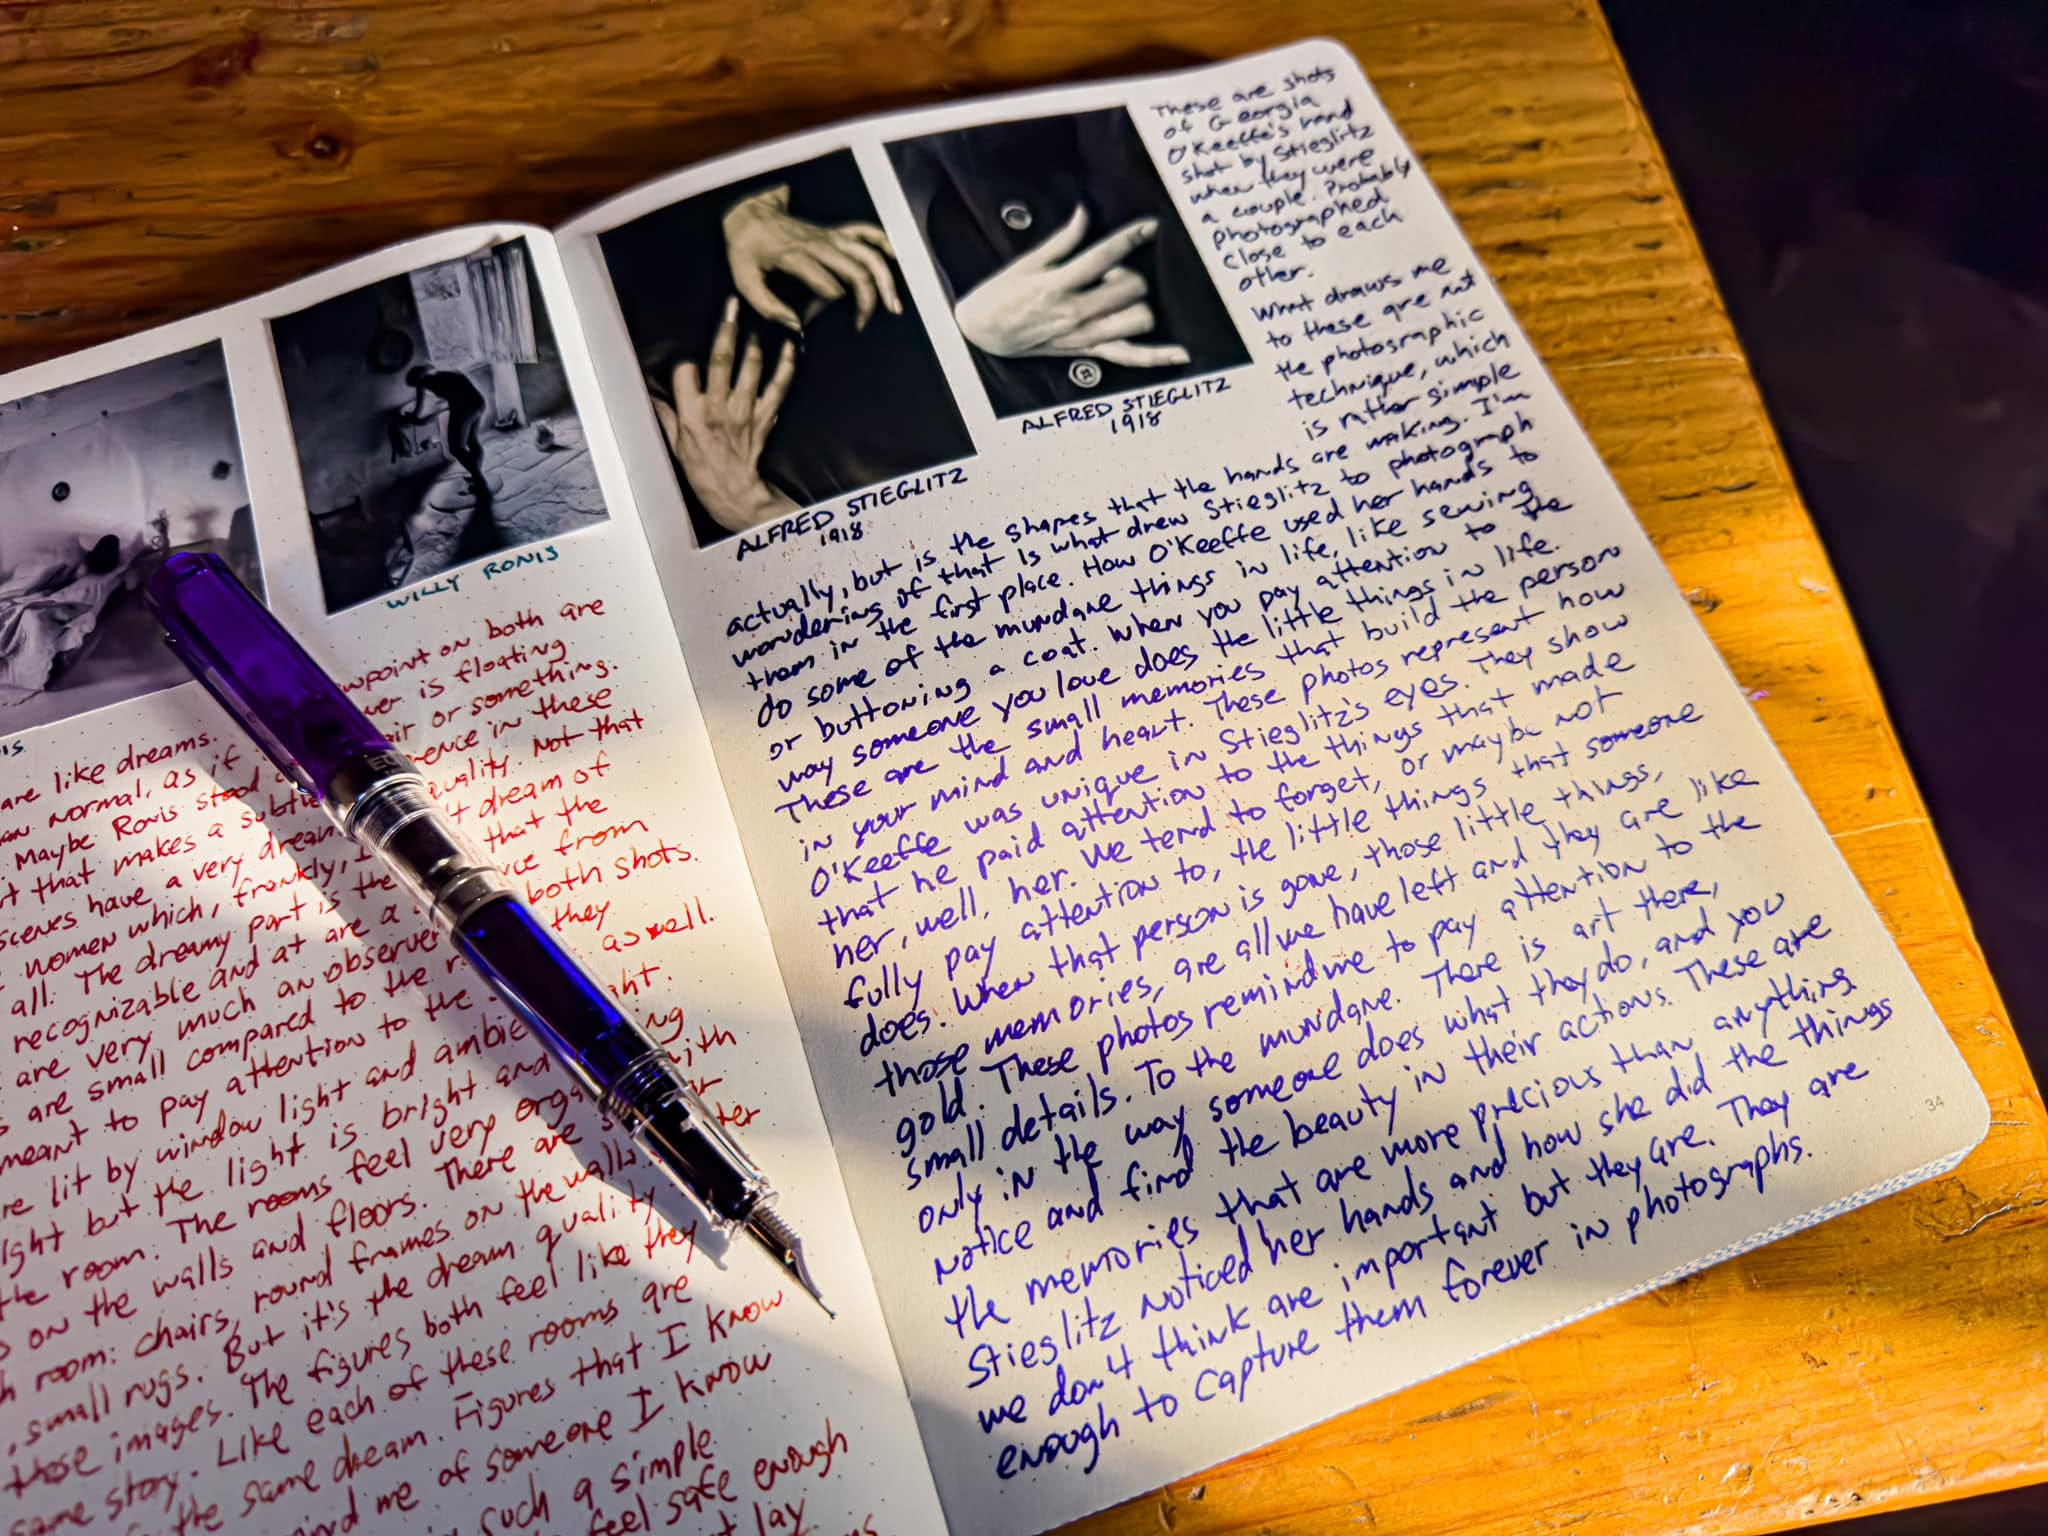 WILLY RONIS
are like dreams.
an normal, as if
Maybe Ronis stood
that makes a subtle
scenes have a very dream quality. Not that
women which, frankly, I dream of
all. The dreamy part is the that the
recognizable and at are a from
are very much an observer both shots.
are small compared to the they as well.
meant to pay attention to the
lit by window light and ambie
but the light is bright and with
the room. The rooms feel very
on the walls and floors. There are
room: chairs, round frames on the walls
small rugs. But it's the dream quality
these images. The figures both feel like they
same story. Like each of these rooms are
the same dream. Figures that I know
me of someone I know
such a simple
feel safe enough
lay
ALFRED STIEGLITZ
1918
ALFRED STIEGLITZ
1918
These are shots
of Georgia
O'Keeffe's hand
shot by Stieglitz
when they were
a couple. Probably
photographed
close to each
other.
What draws me
to these are not
the photographic
technique, which
is rather simple
actually, but is the shapes that the hands are making. I'm
wondering if that is what drew Stieglitz to photograph
them in the first place. How O'Keeffe used her hands to
do some of the mundane things in life, like sewing
or buttoning a coat. When you pay attention to the
way someone you love does the little things in life.
These are the small memories that build the person
in your mind and heart. These photos represent how
O'Keeffe was unique in Stieglitz's eyes. They show
that he paid attention to the things that made
her, well, her. We tend to forget, or maybe not
fully pay attention to, the little things that someone
does. When that person is gone, those little things,
those memories, are all we have left and they are like
gold. These photos remind me to pay attention to the
small details. To the mundane. There is art there,
only in the way someone does what they do, and you
notice and find the beauty in their actions. These are
the memories that are more precious than anything
Stieglitz noticed her hands and how she did the things
we don't think are important but they are. They are
enough to capture them forever in photographs.
34